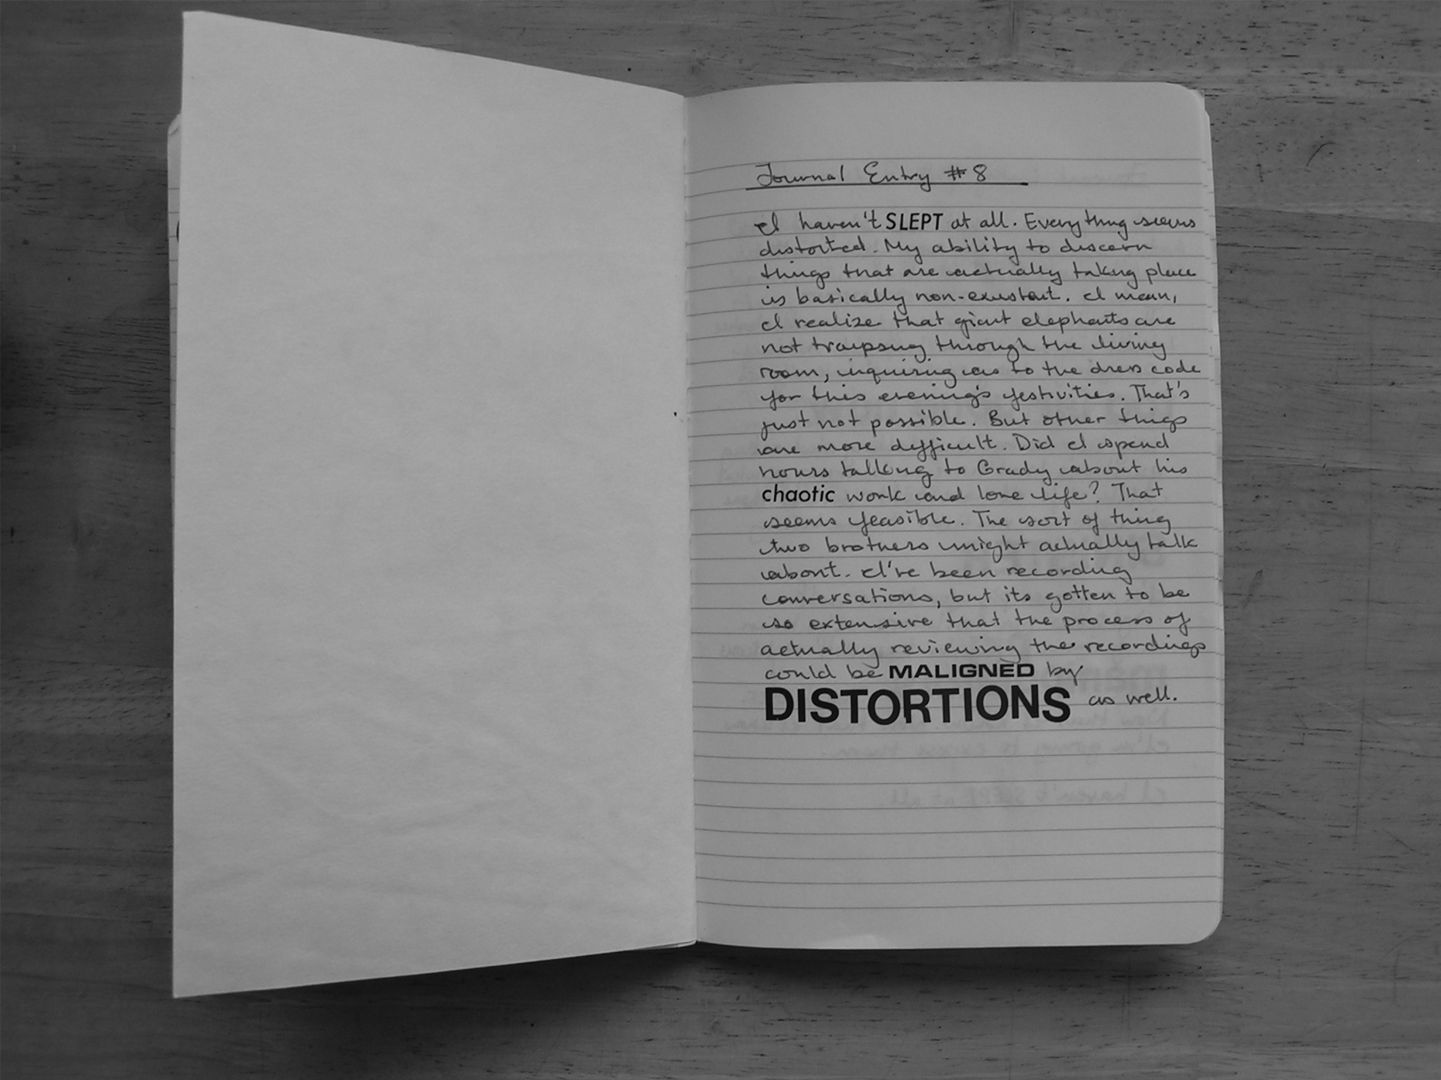 Journal Entry #8
I haven't SLEPT at all. Everything seems
distorted. My ability to discern
things that are actually taking place
is basically non-existent. I mean,
I realize that giant elephants are
not traipsing through the living
room, inquiring as to the dress code
for this evening's festivities. That's
just not possible. But other things
are more difficult. Did I spend
hours talking to Grady about his
chaotic work and love life? That
seems feasible. The sort of thing
two brothers might actually talk
about. I've been recording
conversations, but its gotten to be
so extensive that the process of
actually reviewing the recordings
could be MALIGNED by
DISTORTIONS as well.